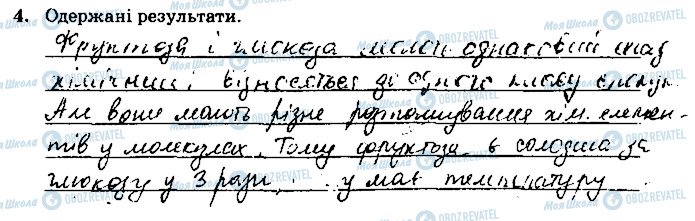 4. Одержані результати.
Фруктоза і глюкоза мають однаковий
хімічний і відносяться до одного класу сполук
Але вони мають різне розташування хім. елемен-
тів у молекулах. Тому фруктоза є солодша за
глюкозу у 3 рази, ... у має температуру